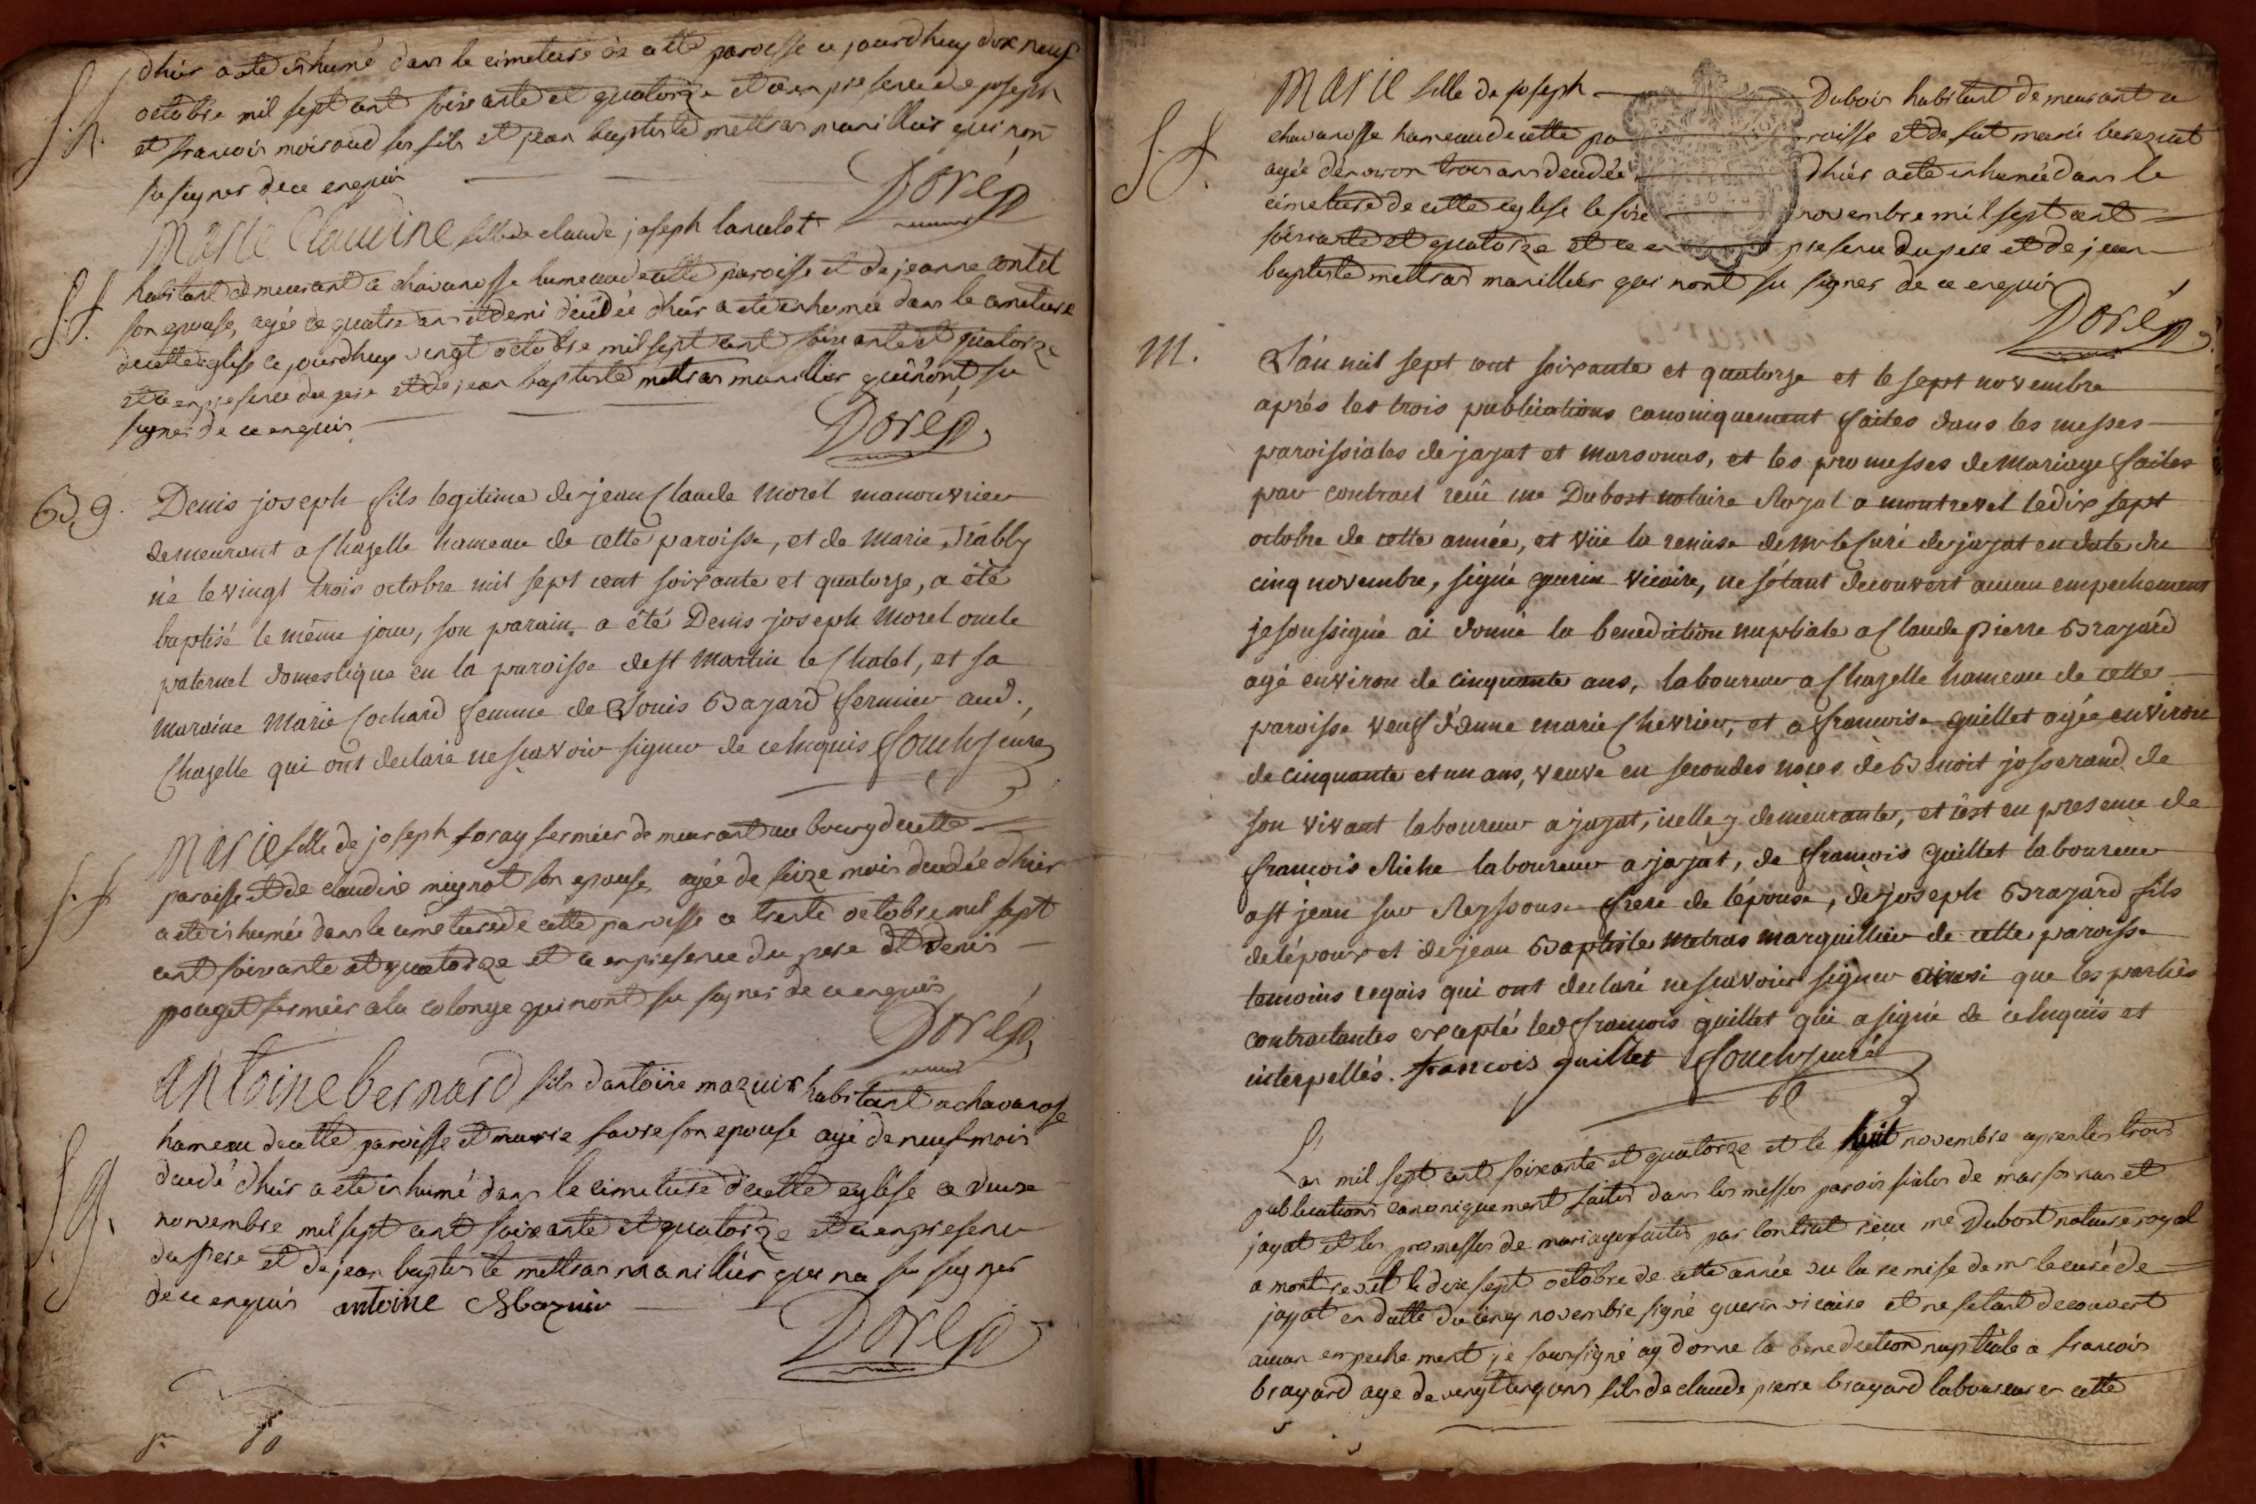 dhier a été inhumé dans le cimetiere de cette paroisse ce jourdhuy dix neuf
octobre mil sept cent soixante et quatorze et ce en presence de joseph
et francois moiroud ses fils et jean baptiste mettras marillier qui n'ont
su signer de ce enquis
Doré
S. f.
Marie Claudine fille de claude joseph lanclot
habitant demeurant a chavanosse hameau de cette paroisse et de jeanne contet
son epouse, agée de quatre ans et demi décédée dhier a eté inhumée dans le cimetiere
de cette eglise ce jourdhuy vingt octobre mil sept cent soixante et quatorze
et ce en presence du pere et de jean baptiste mettras marillier qui n'ont su
signer de ce enquis
Doré
B. g.
Denis joseph fils legitime de jean Claude Morel manouvrier
demeurant a Chazelle hameau de cette paroisse, et de Marie
né le vingt trois octobre mil sept cent soixante et quatorze, a été
baptisé le même jour, son parain a été Denis joseph Morel oncle
paternel domestique en la paroisse de st Martin le Chatel, et sa
maraine Marie Cochard femme de Louis Bayard fermier aud.
Chazelle qui ont declaré ne scavoir signer de ce enquis
curé
S. f.
Marie fille de joseph foray fermier demeurant au bourg de cette
paroisse et de claudine mignot son epouse agée de seize mois decedée d'hier
a eté inhumée dans le cimetiere de cette paroisse ce trente octobre mil sept
cent soixante et quatorze et ce en presence du pere et denis
pouget fermier a la colonge qui n'ont su signer de ce enquis
Doré
S. g.
Antoine bernard fils d'antoine mazuir habitant a chavanosse
hameau de cette paroisse et marie favre son epouse agé de neuf mois
decedé d'hier a eté inhumé dans le cimetiere de cette eglise ce deuxe
novembre mil sept cent soixante et quatorze et ce en presence
du pere et de jean baptiste mettras marillier qui na su signer
de ce enquis antoine Mazuir
Doré
S. f.
Marie fille de joseph Dubois habitant demeurant a
chavanosse hameau de cette paroisse et de fut marie
agée d'environ trois ans decedée d'hier a eté inhumée dans le
cimetiere de cette eglise le six novembre mil sept cent
soixante et quatorze et ce en presence du pere et de jean
baptiste mettras marillier qui n'ont su signer de ce enquis
Doré
M.
L'an mil sept cent soixante et quatorze et le sept novembre
aprés les trois publications canoniquement faites dans les messes
paroissiales de jayat et marsonas, et les promesses de mariage faites
par contract reçû me Dubost notaire Royal a montrevel le dix sept
octobre de cette année, et vüe la remise de Mr le Curé de jayat en date du
cinq novembre, signé guerin vicaire, ne s'étant decouvert aucun empechement
je soussigné ai donné la benediction nuptiale a Claude Pierre Brayard
agé environ de cinquante ans, laboureur a Chazelle hameau de cette
paroisse veuf d'anne marie Chevrier, et a francoise guillet agée environ
de cinquante et un ans, veuve en secondes noces de Benoit josserand de
son vivant laboureur a jayat, icelle y demeurante, et c'est en presence de
françois Riche laboureur a jayat, de francois guillet laboureur
a st jean sur Reyssouse frere de l'épouse, de joseph Brayard fils
de l'époux et de jean Baptiste Metras marguillier de cette paroisse
temoins requis qui ont declaré ne scavoir signer ainsi que les parties
contractantes excepté led françois guillet qui a signé de ce enquis et
interpellés. francois guillet curé
L'an mil sept cent soixante et quatorze et le huit novembre apres les trois
publications canoniquement faites dans les messes paroissiales de marsonas et
jayat et les promesses de mariage faites par contrat reçu me Dubost notaire royal
a montrevel le dix sept octobre de cette année vu la remise de mr le curé de
jayat en datte du cinq novembre signé guerin vicaire et ne setant decouvert
aucun empechement je soussigné ay donné la benediction nuptiale a francois
brayard agé de vingt cinq ans fils de claude pierre brayard laboureur en cette